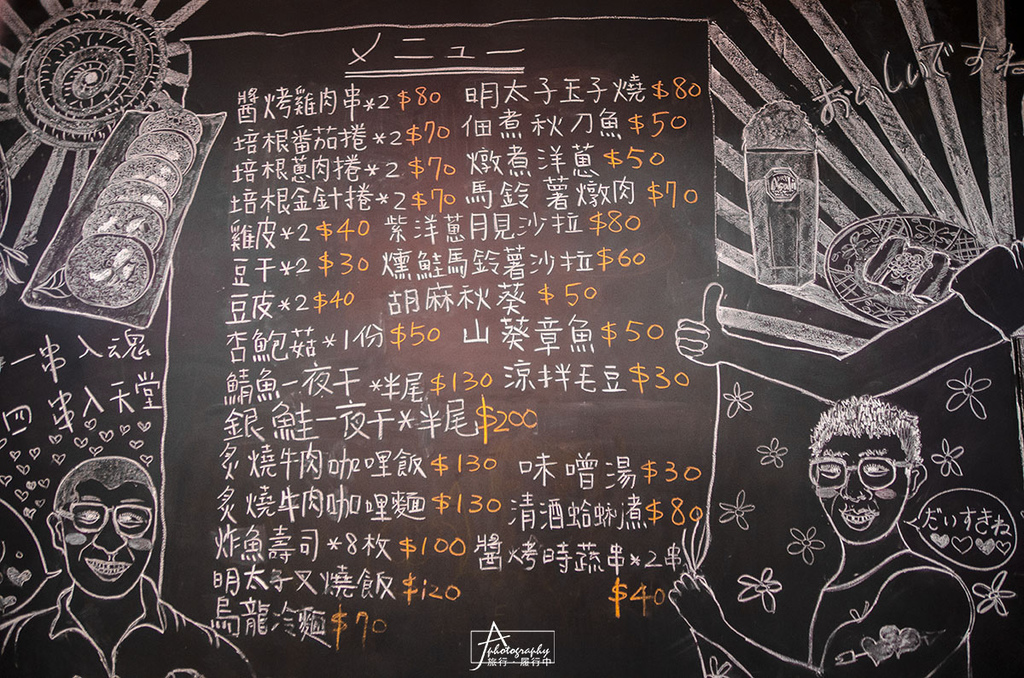 メニュー
醬烤雞肉串*2 $80
培根番茄捲*2 $70
培根蔥肉捲*2 $70
培根金針捲*2 $70
雞皮*2 $40
豆干*2 $30
豆皮*2 $40
杏鮑菇*1份 $50
鯖魚一夜干*半尾 $130
銀鮭一夜干*半尾 $200
炙燒牛肉咖哩飯 $130
炙燒牛肉咖哩麵 $130
炸魚壽司*8枚 $100
明太子叉燒飯 $120
烏龍冷麵 $70
明太子玉子燒 $80
佃煮秋刀魚 $50
燉煮洋蔥 $50
馬鈴薯燉肉 $70
紫洋蔥月見沙拉 $80
燻鮭馬鈴薯沙拉 $60
胡麻秋葵 $50
山葵章魚 $50
涼拌毛豆 $30
味噌湯 $30
清酒蛤蜊煮 $80
醬烤時蔬串*2串
$40
一串入魂
四串入天堂
おいしいですね
だいすきね
A photography
旅行·履行中